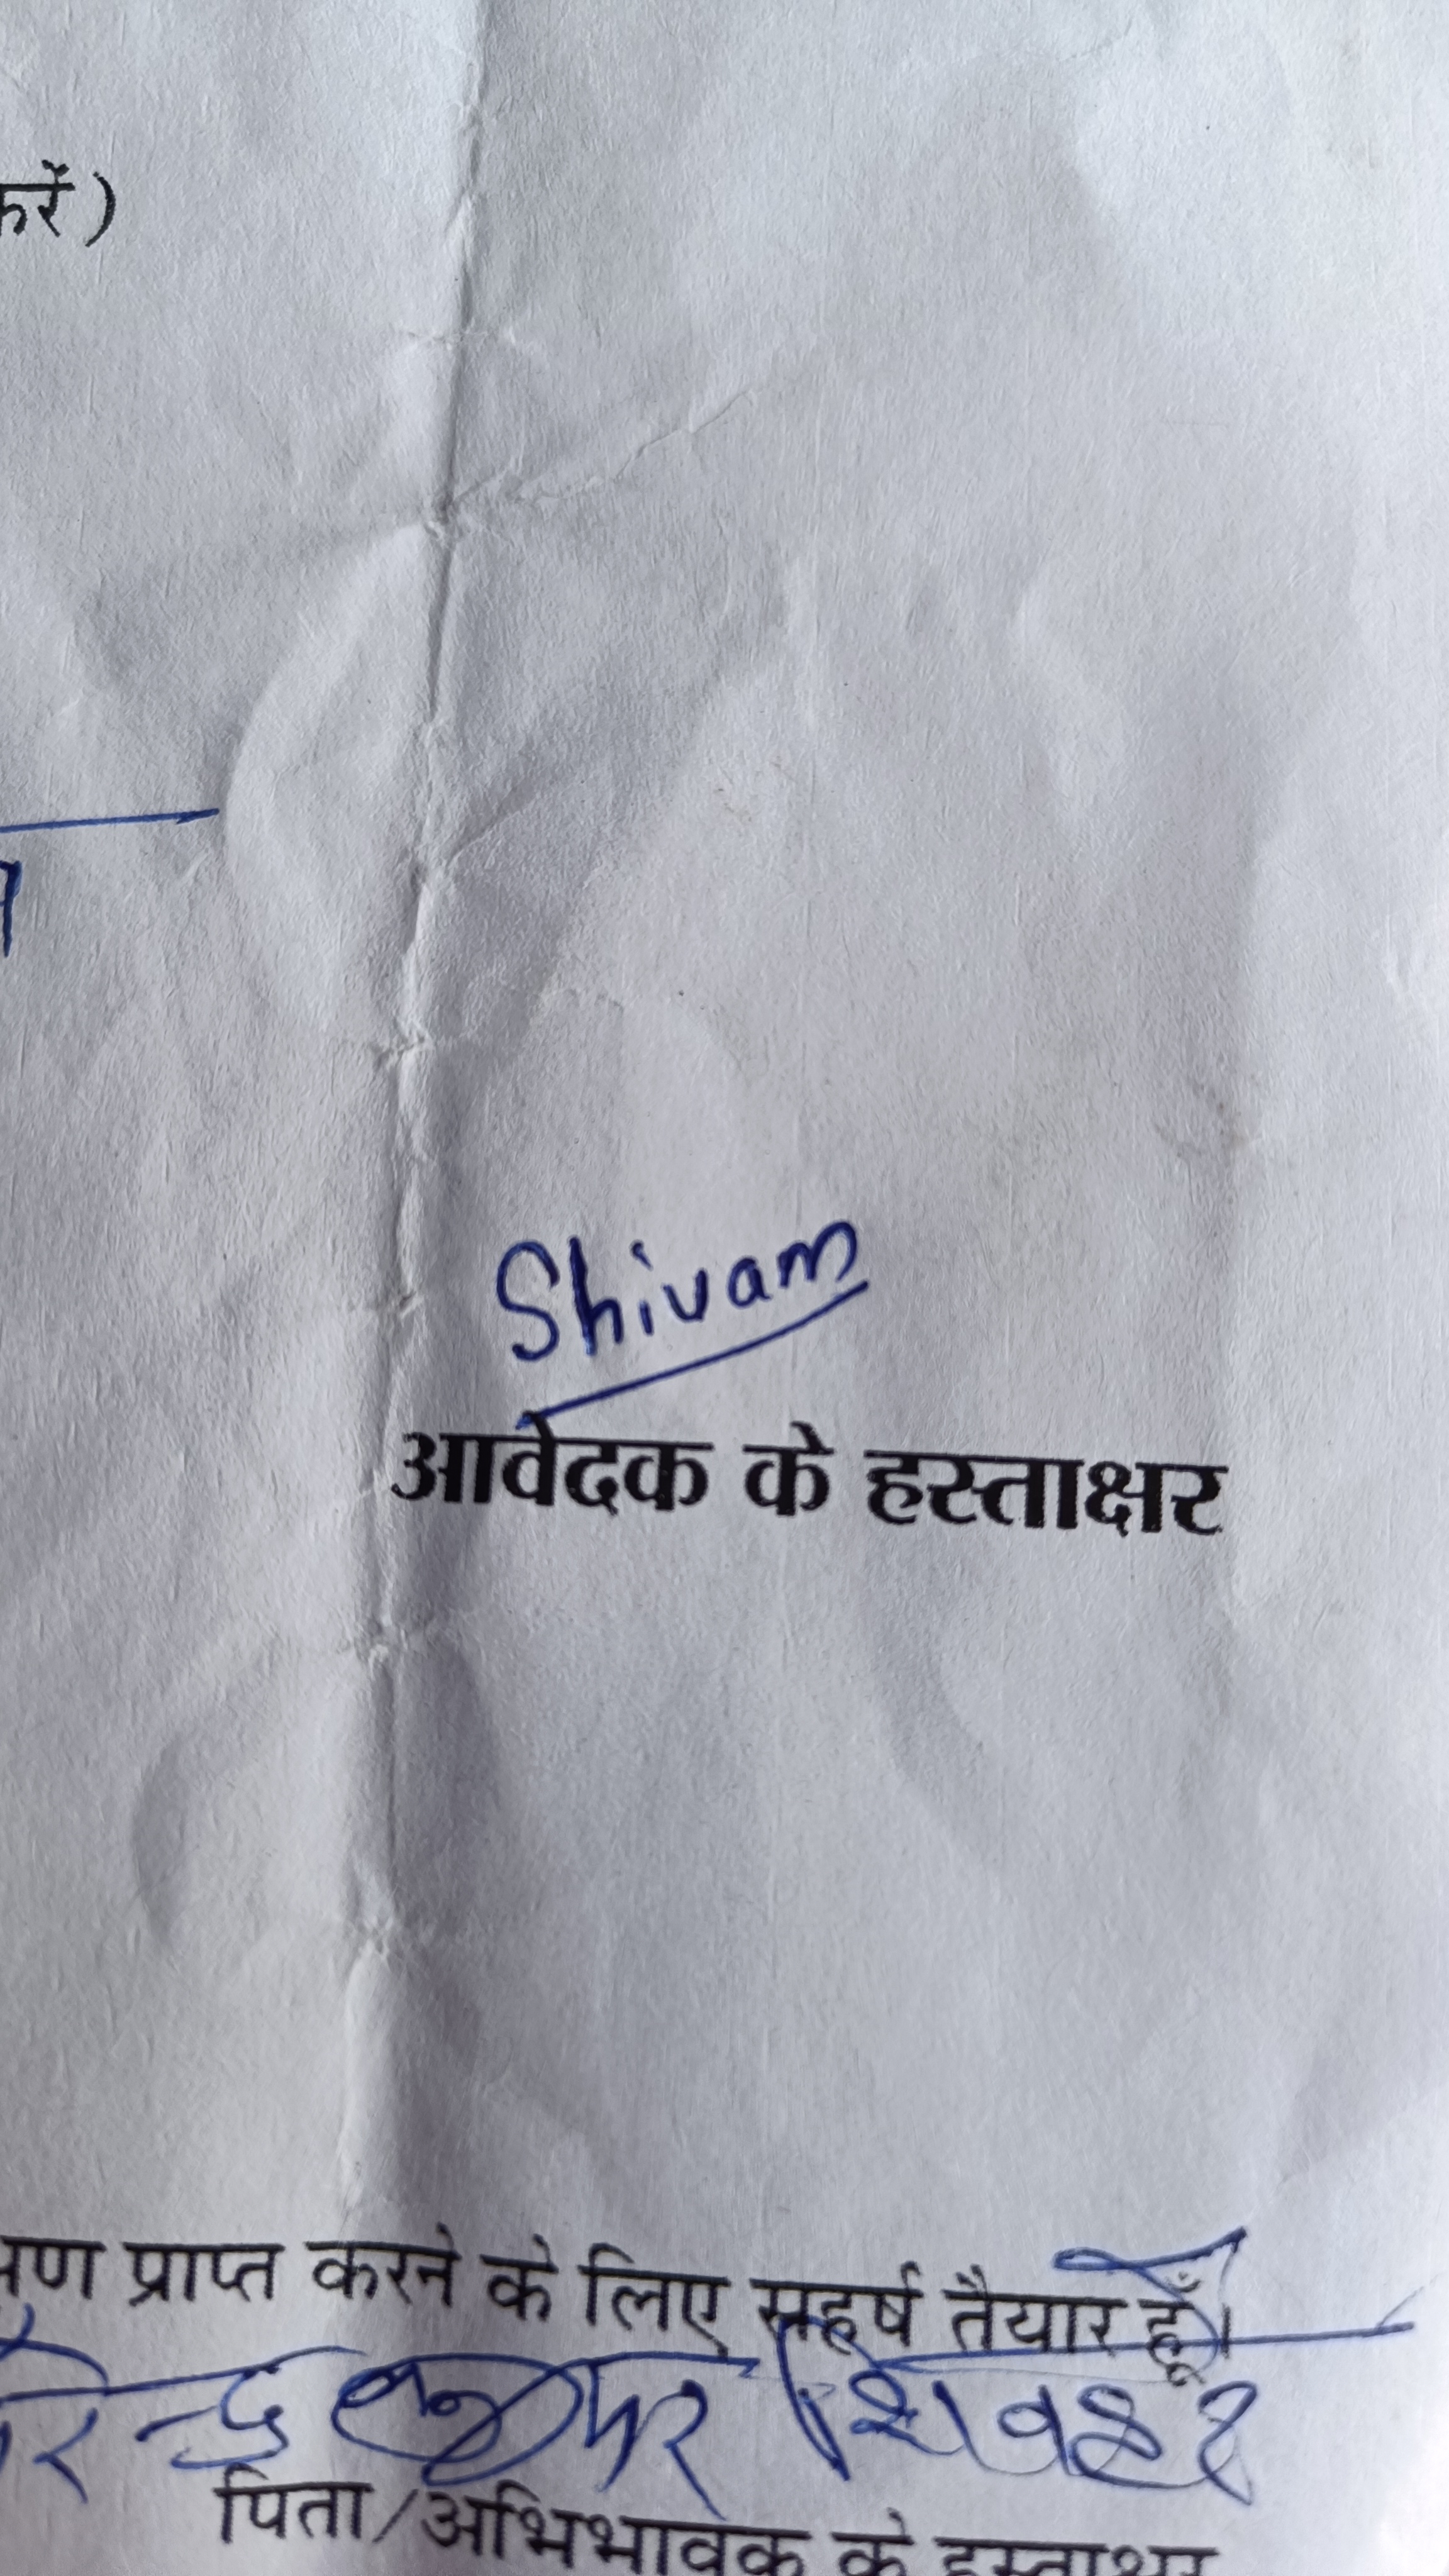 करें)
Shivam
आवेदक के हस्ताक्षर
प्राप्त करने के लिए सहर्ष तैयार हूँ।
कुमार
पिता/अभिभावक के हस्ताक्षर